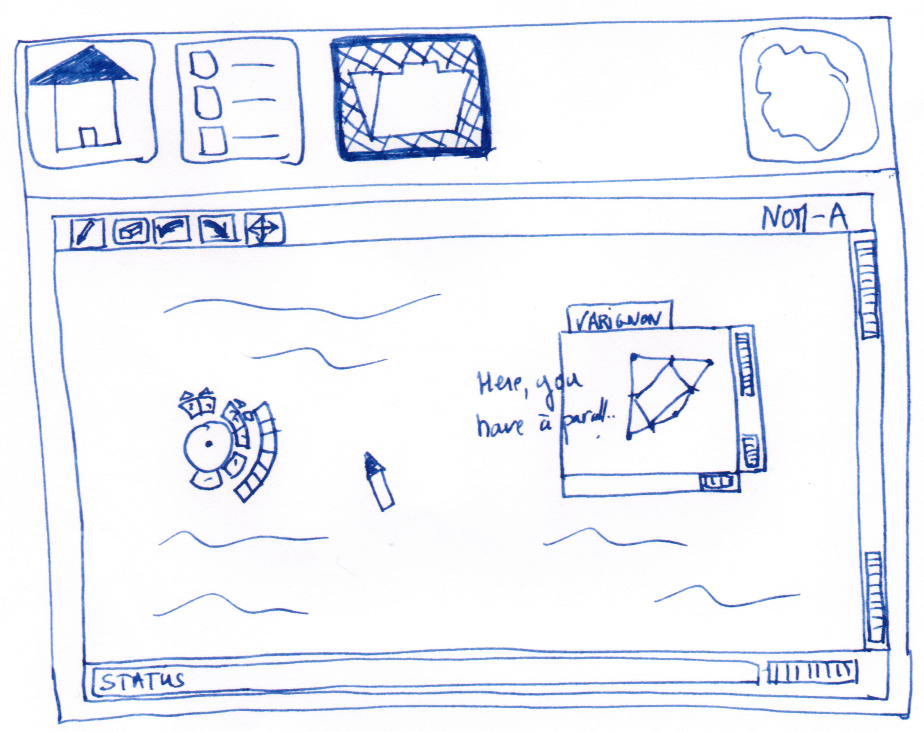 Non-A
VARIGNON
Here, you
have à parall..
STATUS